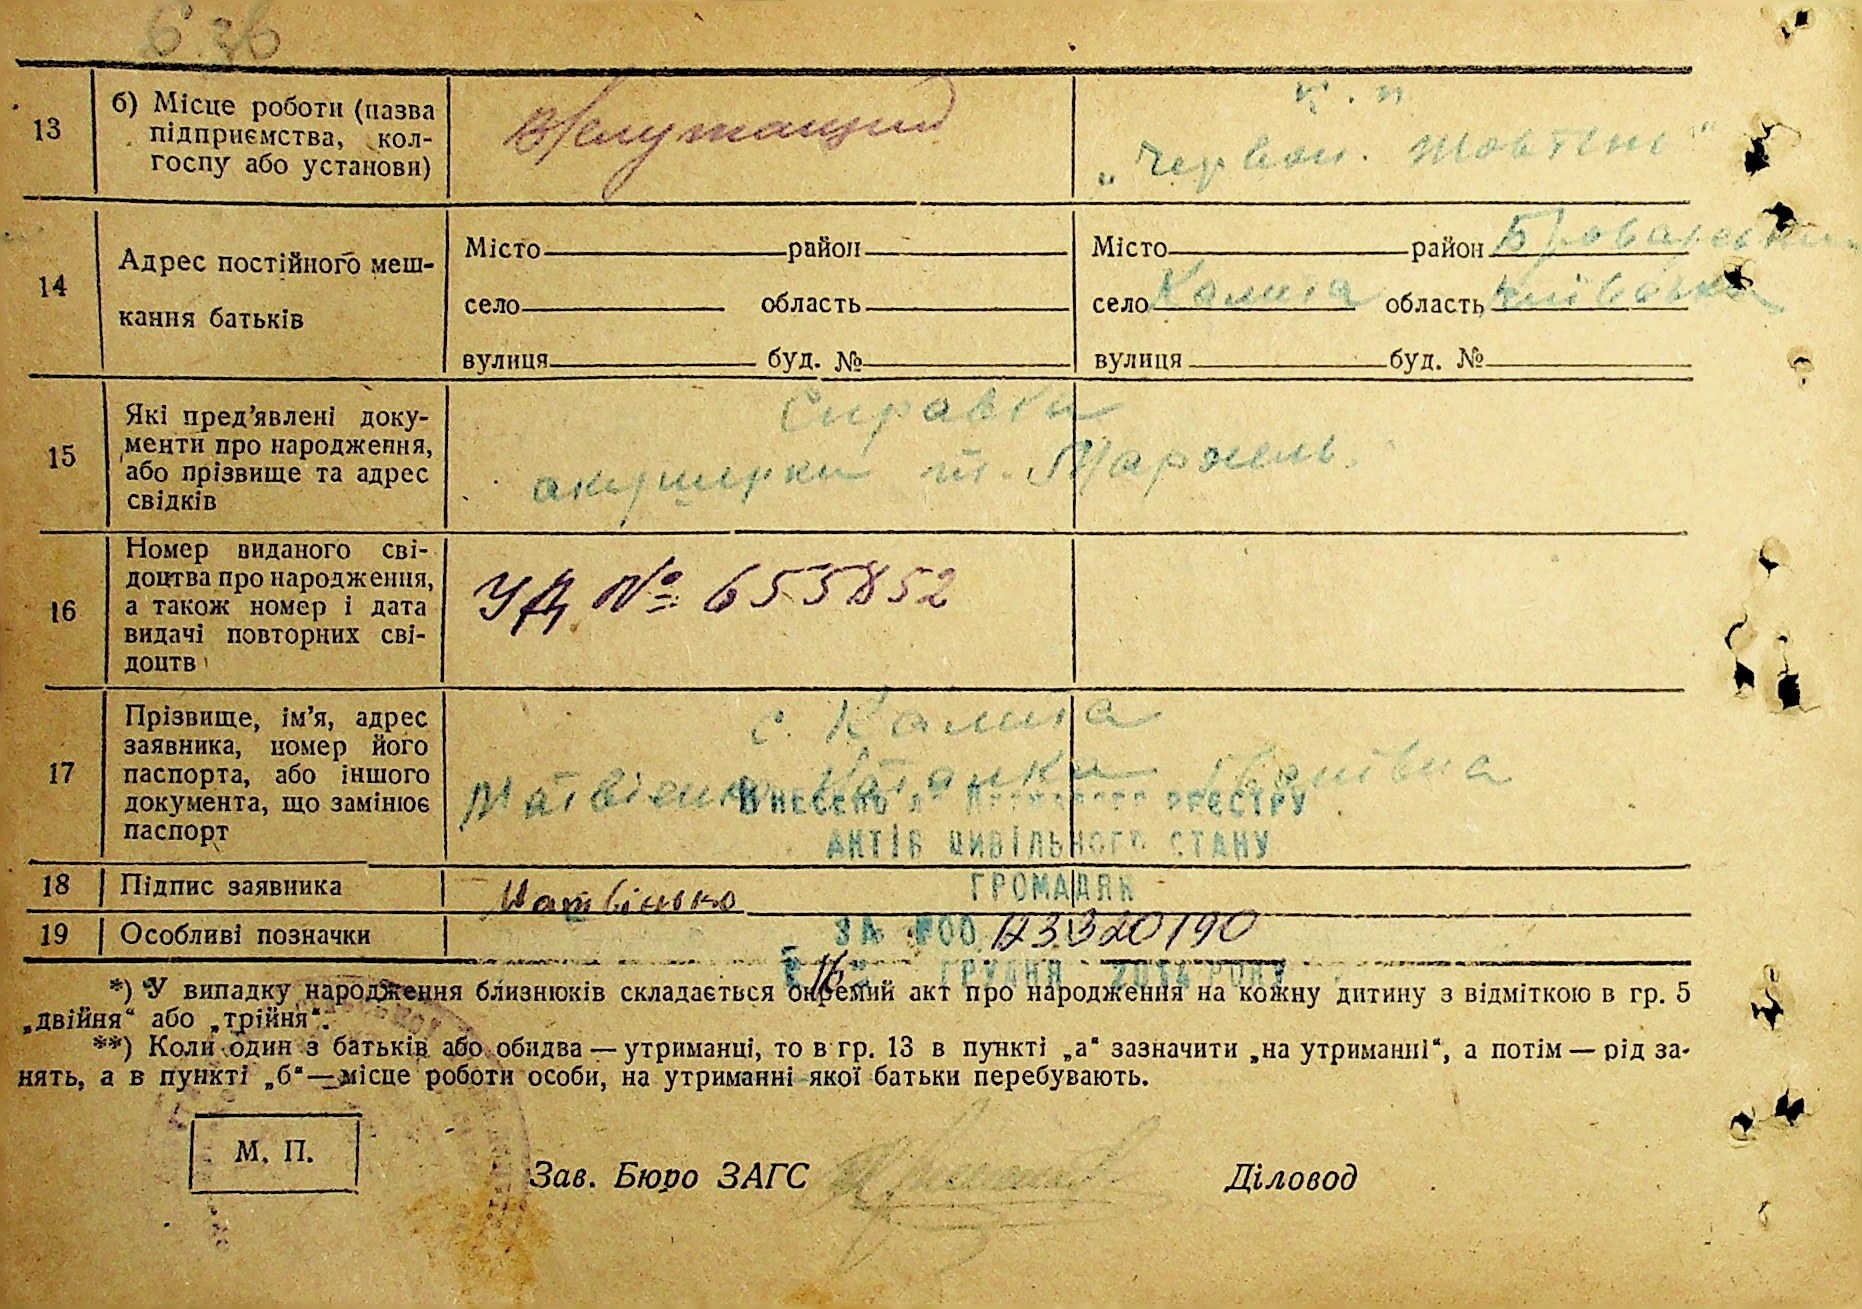 13
б) Місце роботи (назва
підприємства, кол-
госпу або установи)
к. п
„Червон. Жовтень"
14
Адрес постійного меш-
кання батьків
Місто район
село область
вулиця буд. №
Місто район Броварський
село Калита область Київська
вулиця буд. №
15
Які пред'явлені доку-
менти про народження,
або прізвище та адрес
свідків
Справки
акушерки
16
Номер виданого сві-
доцтва про народження,
а також номер і дата
видачі повторних сві-
доцтв
УД № 655852
17
Прізвище, ім'я, адрес
заявника, номер його
паспорта, або іншого
документа, що замінює
паспорт
с. Калита
Матвієнко
ВНЕСЕНО ДО Державного РЕЄСТРУ
АКТІВ ЦИВІЛЬНОГО СТАНУ
ГРОМАДЯН
18
Підпис заявника
Матвієнко
19
Особливі позначки
ЗА №00123320190
16 ГРУДНЯ 2014 РОКУ
*) У випадку народження близнюків складається окремий акт про народження на кожну дитину з відміткою в гр. 5
„двійня“ або „трійня“.
**) Коли один з батьків або обидва — утриманці, то в гр. 13 в пункті „а“ зазначити „на утриманні“, а потім — рід за-
нять, а в пункті „б“ — місце роботи особи, на утриманні якої батьки перебувають.
М. П.
Зав. Бюро ЗАГС
Діловод